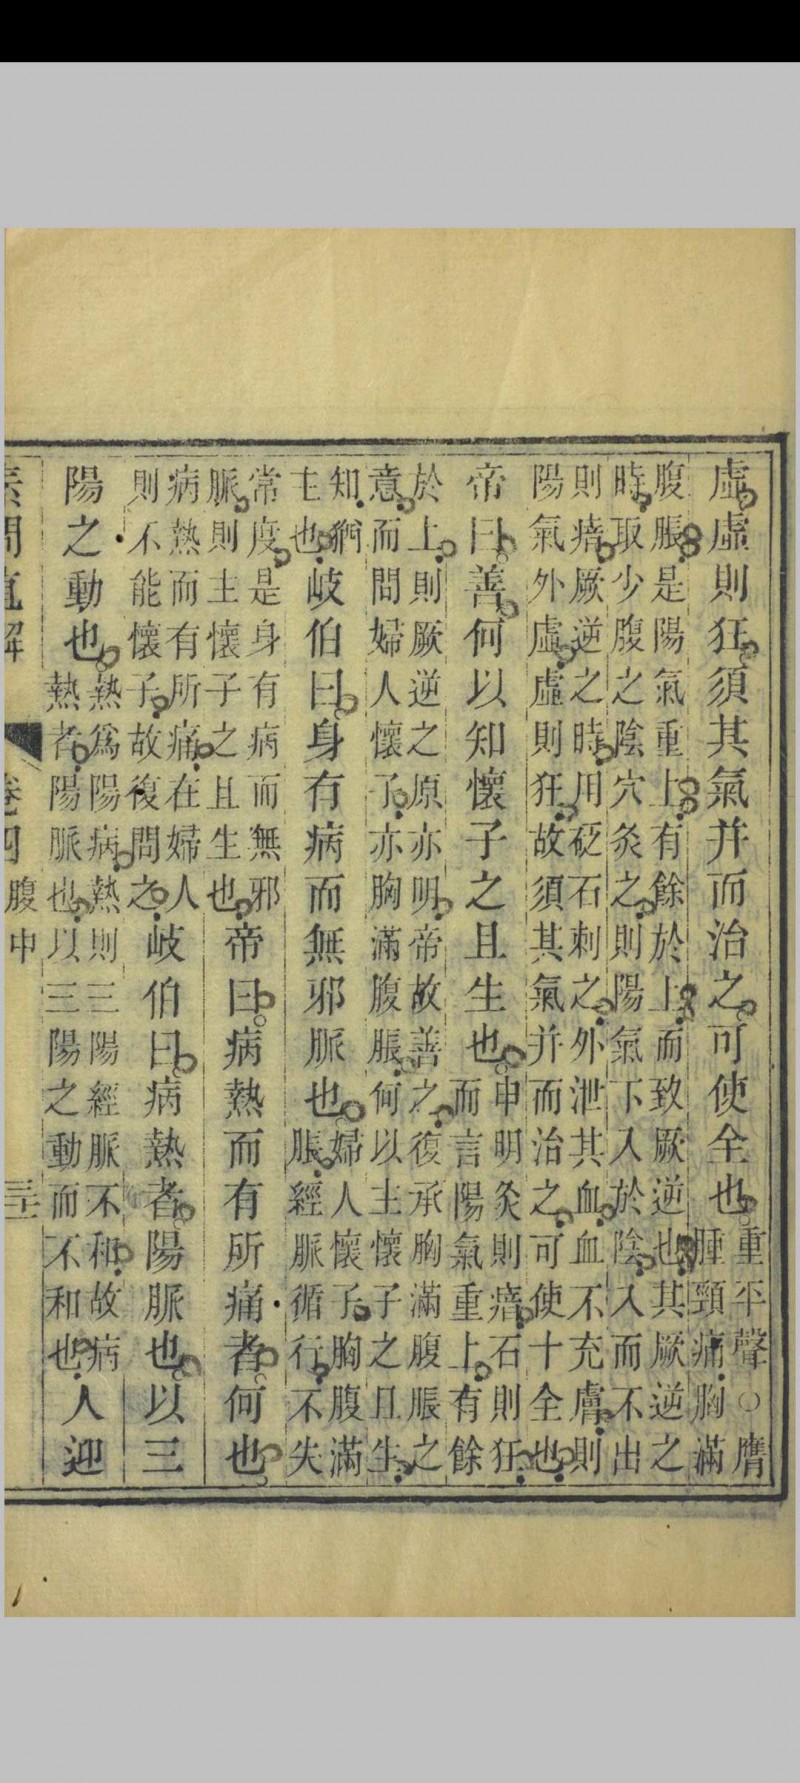 虛虛則狂須其氣并而治之可使全也重平聲○膺
腫頸痛胸滿
腹脹是陽氣重上有餘於上而致厥逆也其厥逆之
時取少腹之陰穴灸之則陽氣下入於陰入而不出
則瘖厥逆之時用砭石刺之外泄其血血不充膚則
陽氣外虛虛則狂故須其氣并而治之可使十全也
帝曰善何以知懷子之且生也申明灸則瘖石則狂
而言陽氣重上有餘
於上則厥逆之原亦明帝故善之復承胸滿腹脹之
意而問婦人懷子亦胸滿腹脹何以主懷子之且生
知
主也岐伯曰身有病而無邪脈也婦人懷子胸腹滿
脹經脈循行不失
常度是身有病而無邪
脈則主懷子之且生也帝曰病熱而有所痛者何也
病熱而有所痛在婦人
則不能懷子故復問之岐伯曰病熱者陽脈也以三
陽之動也熱爲陽病熱則三陽經脈不和故病
熱者陽脈也以三陽之動而不和也人迎
素問直解
卷四
腹中